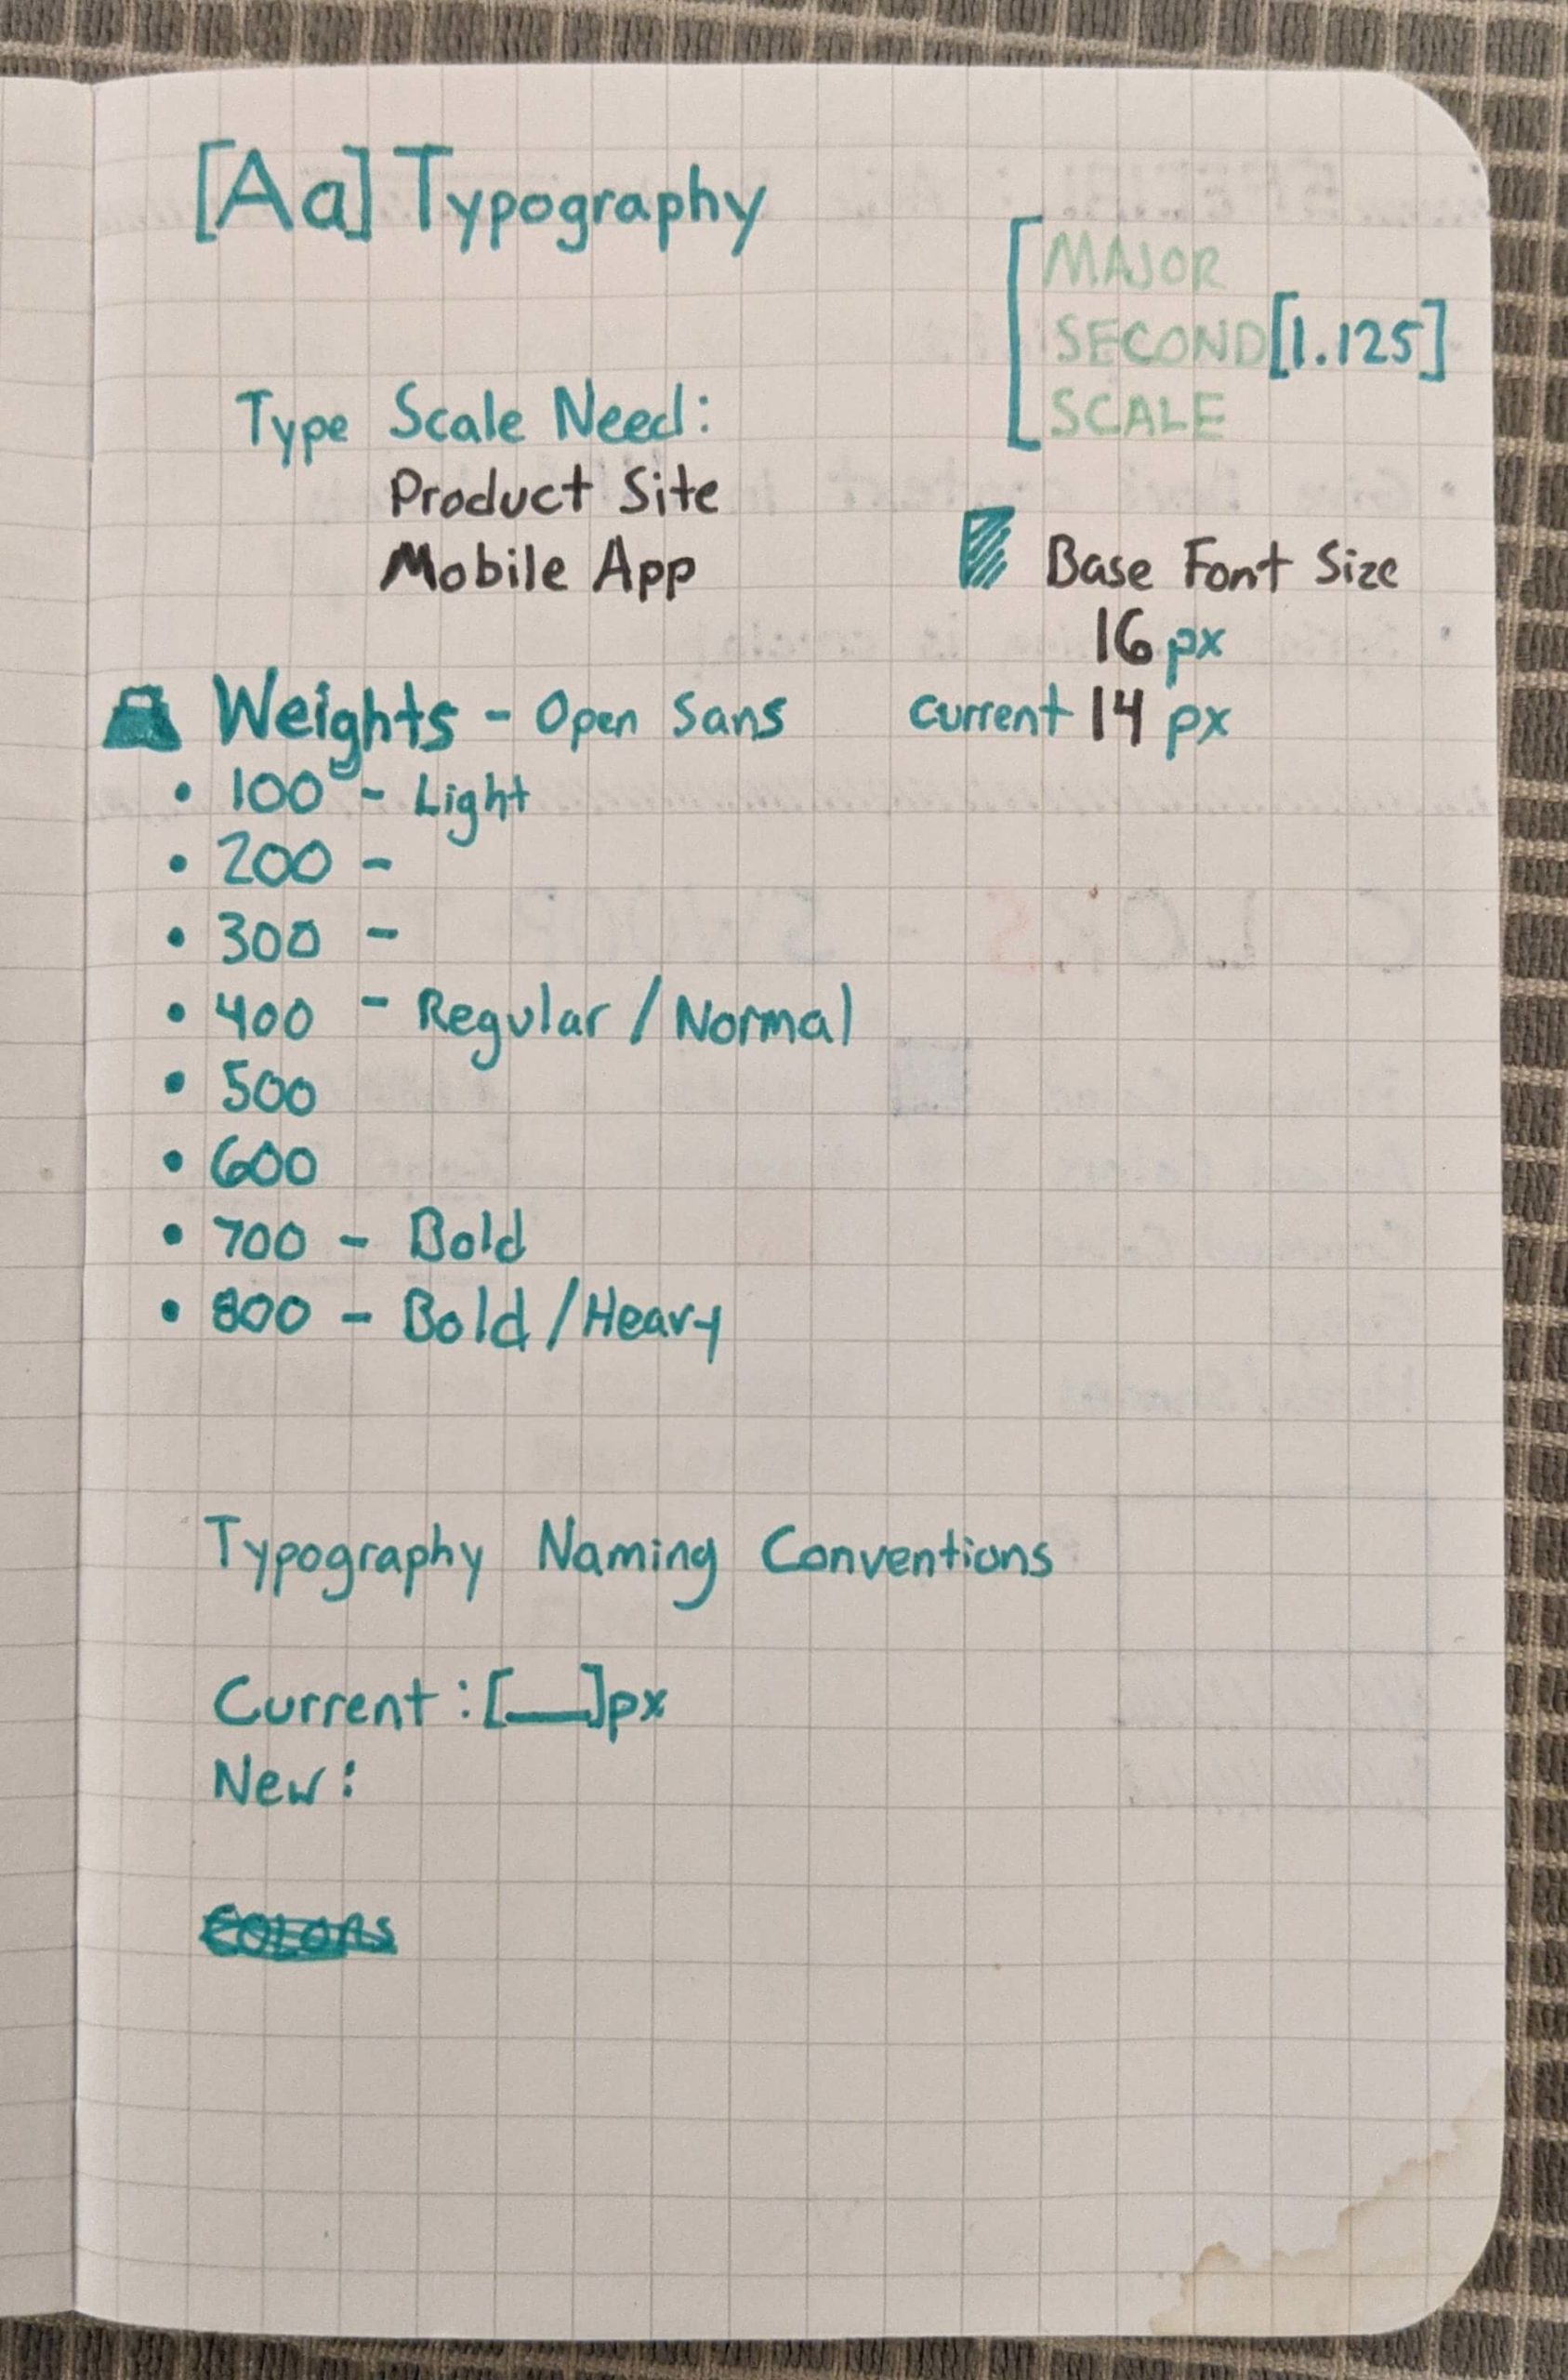 [Aa] Typography
MAJOR
SECOND [1.125]
SCALE
Type Scale Need:
Product Site
Mobile App
Base Font Size
16 px
current 14 px
Weights - Open Sans
• 100 - Light
• 200 -
• 300 -
• 400 - Regular / Normal
• 500
• 600
• 700 - Bold
• 800 - Bold / Heavy
Typography Naming Conventions
Current: [__]px
New:
COLORS